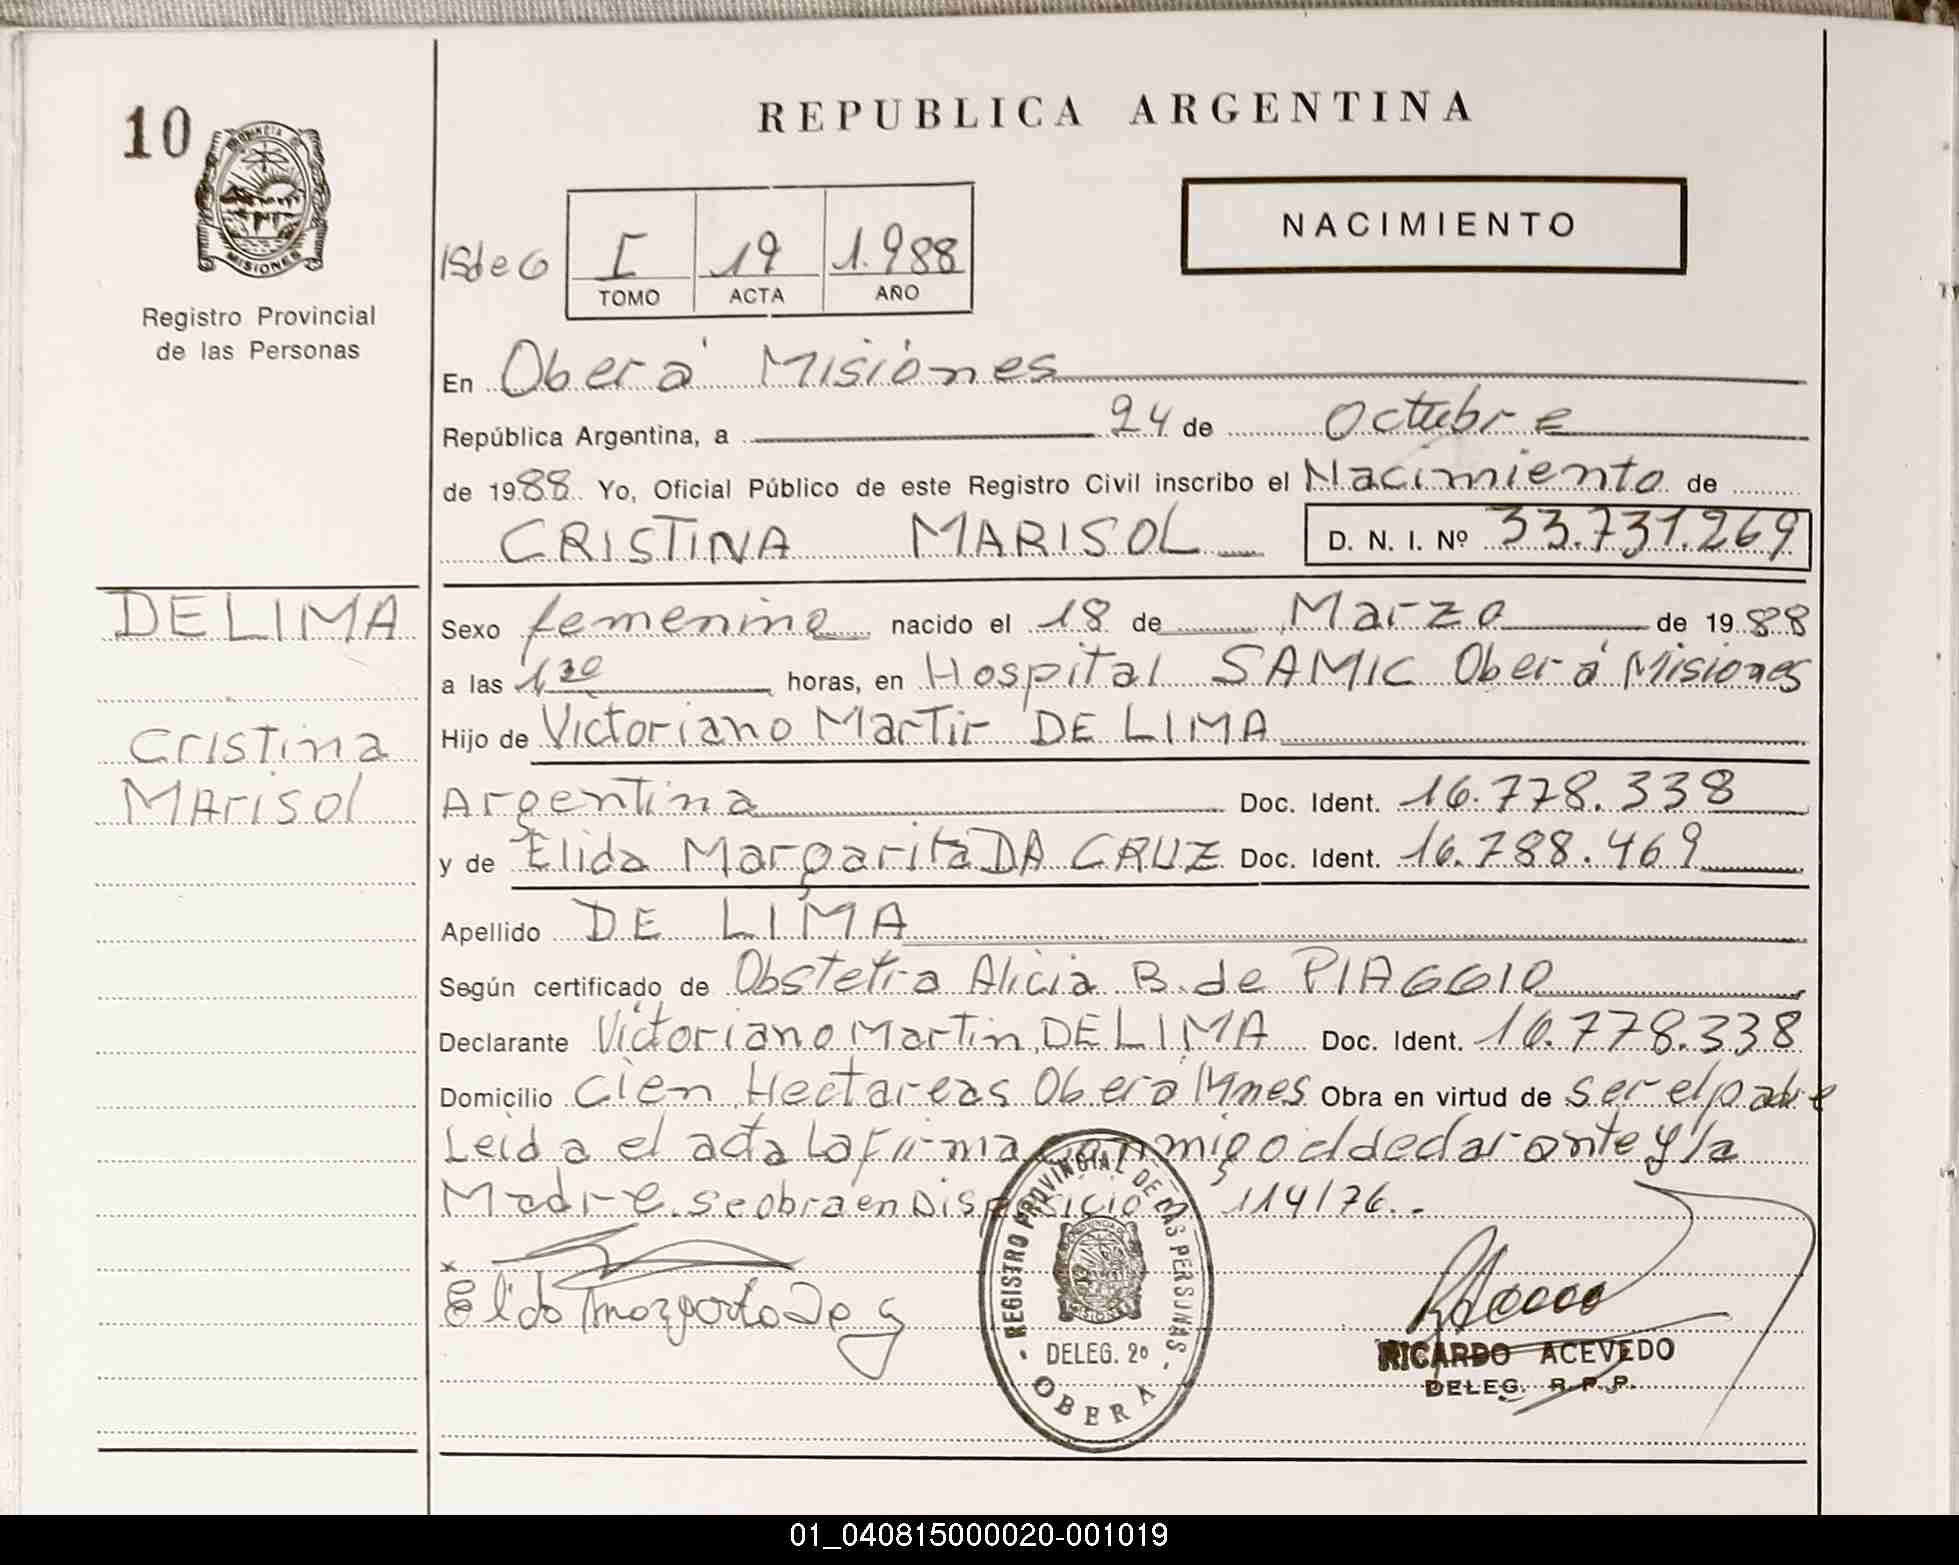 10
PROVINCIA DE
MISIONES
Registro Provincial
de las Personas
REPUBLICA ARGENTINA
NACIMIENTO
I 19 1.988
TOMO ACTA AÑO
En Oberá Misiones
República Argentina, a 24 de Octubre
de 1988 Yo, Oficial Público de este Registro Civil inscribo el Nacimiento de
CRISTINA MARISOL D. N. I. Nº 33.731.269
DE LIMA
Cristina
Marisol
Sexo femenino nacido el 18 de Marzo de 1988
a las 1,30 horas, en Hospital SAMIC Oberá Misiones
Hijo de Victoriano Martir DE LIMA
Argentina Doc. Ident. 16.778.338
y de Elida Margarita DA CRUZ Doc. Ident. 16.788.469
Apellido DE LIMA
Según certificado de Obstetra Alicia B. de PIAGGIO
Declarante Victoriano Martin DE LIMA Doc. Ident. 16.778.338
Domicilio Cien Hectareas Oberá Mnes Obra en virtud de ser el padre
Leida el acta la firma conmigo el declarante y la
Madre. se obra en Disposición 114/76.-
REGISTRO PROVINCIAL DE LAS PERSONAS
DELEG. 2º
OBERA
RICARDO ACEVEDO
DELEG. R.P.P.
01_040815000020-001019